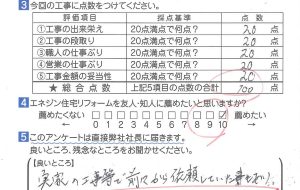 3 今回の工事に点数をつけてください。
評価項目 採点基準 点数
①工事の出来栄え 20点満点で何点？ 20 点
②工事の段取り 20点満点で何点？ 20 点
③職人の仕事ぶり 20点満点で何点？ 20 点
④営業の仕事ぶり 20点満点で何点？ 20 点
⑤工事金額の妥当性 20点満点で何点？ 20 点
★総合点数 上記5項目の点数の合計 100 点
4 エネジン住宅リフォームを友人・知人に薦めたいと思いますか？
薦めたくない ← □□□□□□□□□□□ → 薦めたい
0 1 2 3 4 5 6 7 8 9 10
5 このアンケートは直接弊社社長に届きます。
良いところ、残念なところをお聞かせください。
【良いところ】
実家の工事等で前々から依頼していた事もあり、